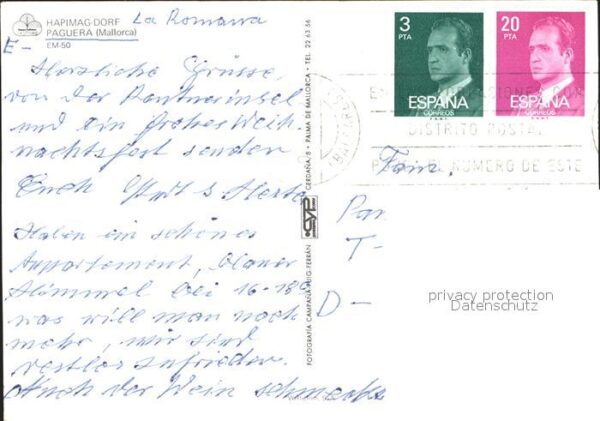 HAPIMAG-DORF
PAGUERA (Mallorca)
EM-50
La Romana
E-
Herzliche Grüsse,
von der Rentnerinsel
und ein frohes Weih-
nachtsfest senden
Euch Kurt & Herta
Haben ein schönes
Appartement, blauer
Himmel bei 16-18°
was will man noch
mehr, wir sind
restlos zufrieden.
Auch der Wein schmeckt
FOTOGRAFIA CAMPAÑA PUIG FERRAN
CYP
CERDAÑA-8 - PALMA DE MALLORCA - TEL. 22 63 56
3
PTA
ESPAÑA
CORREOS
20
PTA
ESPAÑA
CORREOS
CON
DISTRITO POSTAL
EL NUMERO DE ESTE
Fam.
Par
T-
D-
privacy protection
Datenschutz